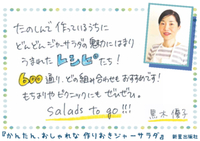 たのしんで作っているうちに
どんどんジャーサラダの魅力にはまり
うまれたレシピたち!
600通り、どの組み合わせもおすすめです!
もちよりやピクニックにもぜひぜひ。
salads to go!!!
黒木優子
『かんたん、おしゃれな 作りおきジャーサラダ』 新星出版社